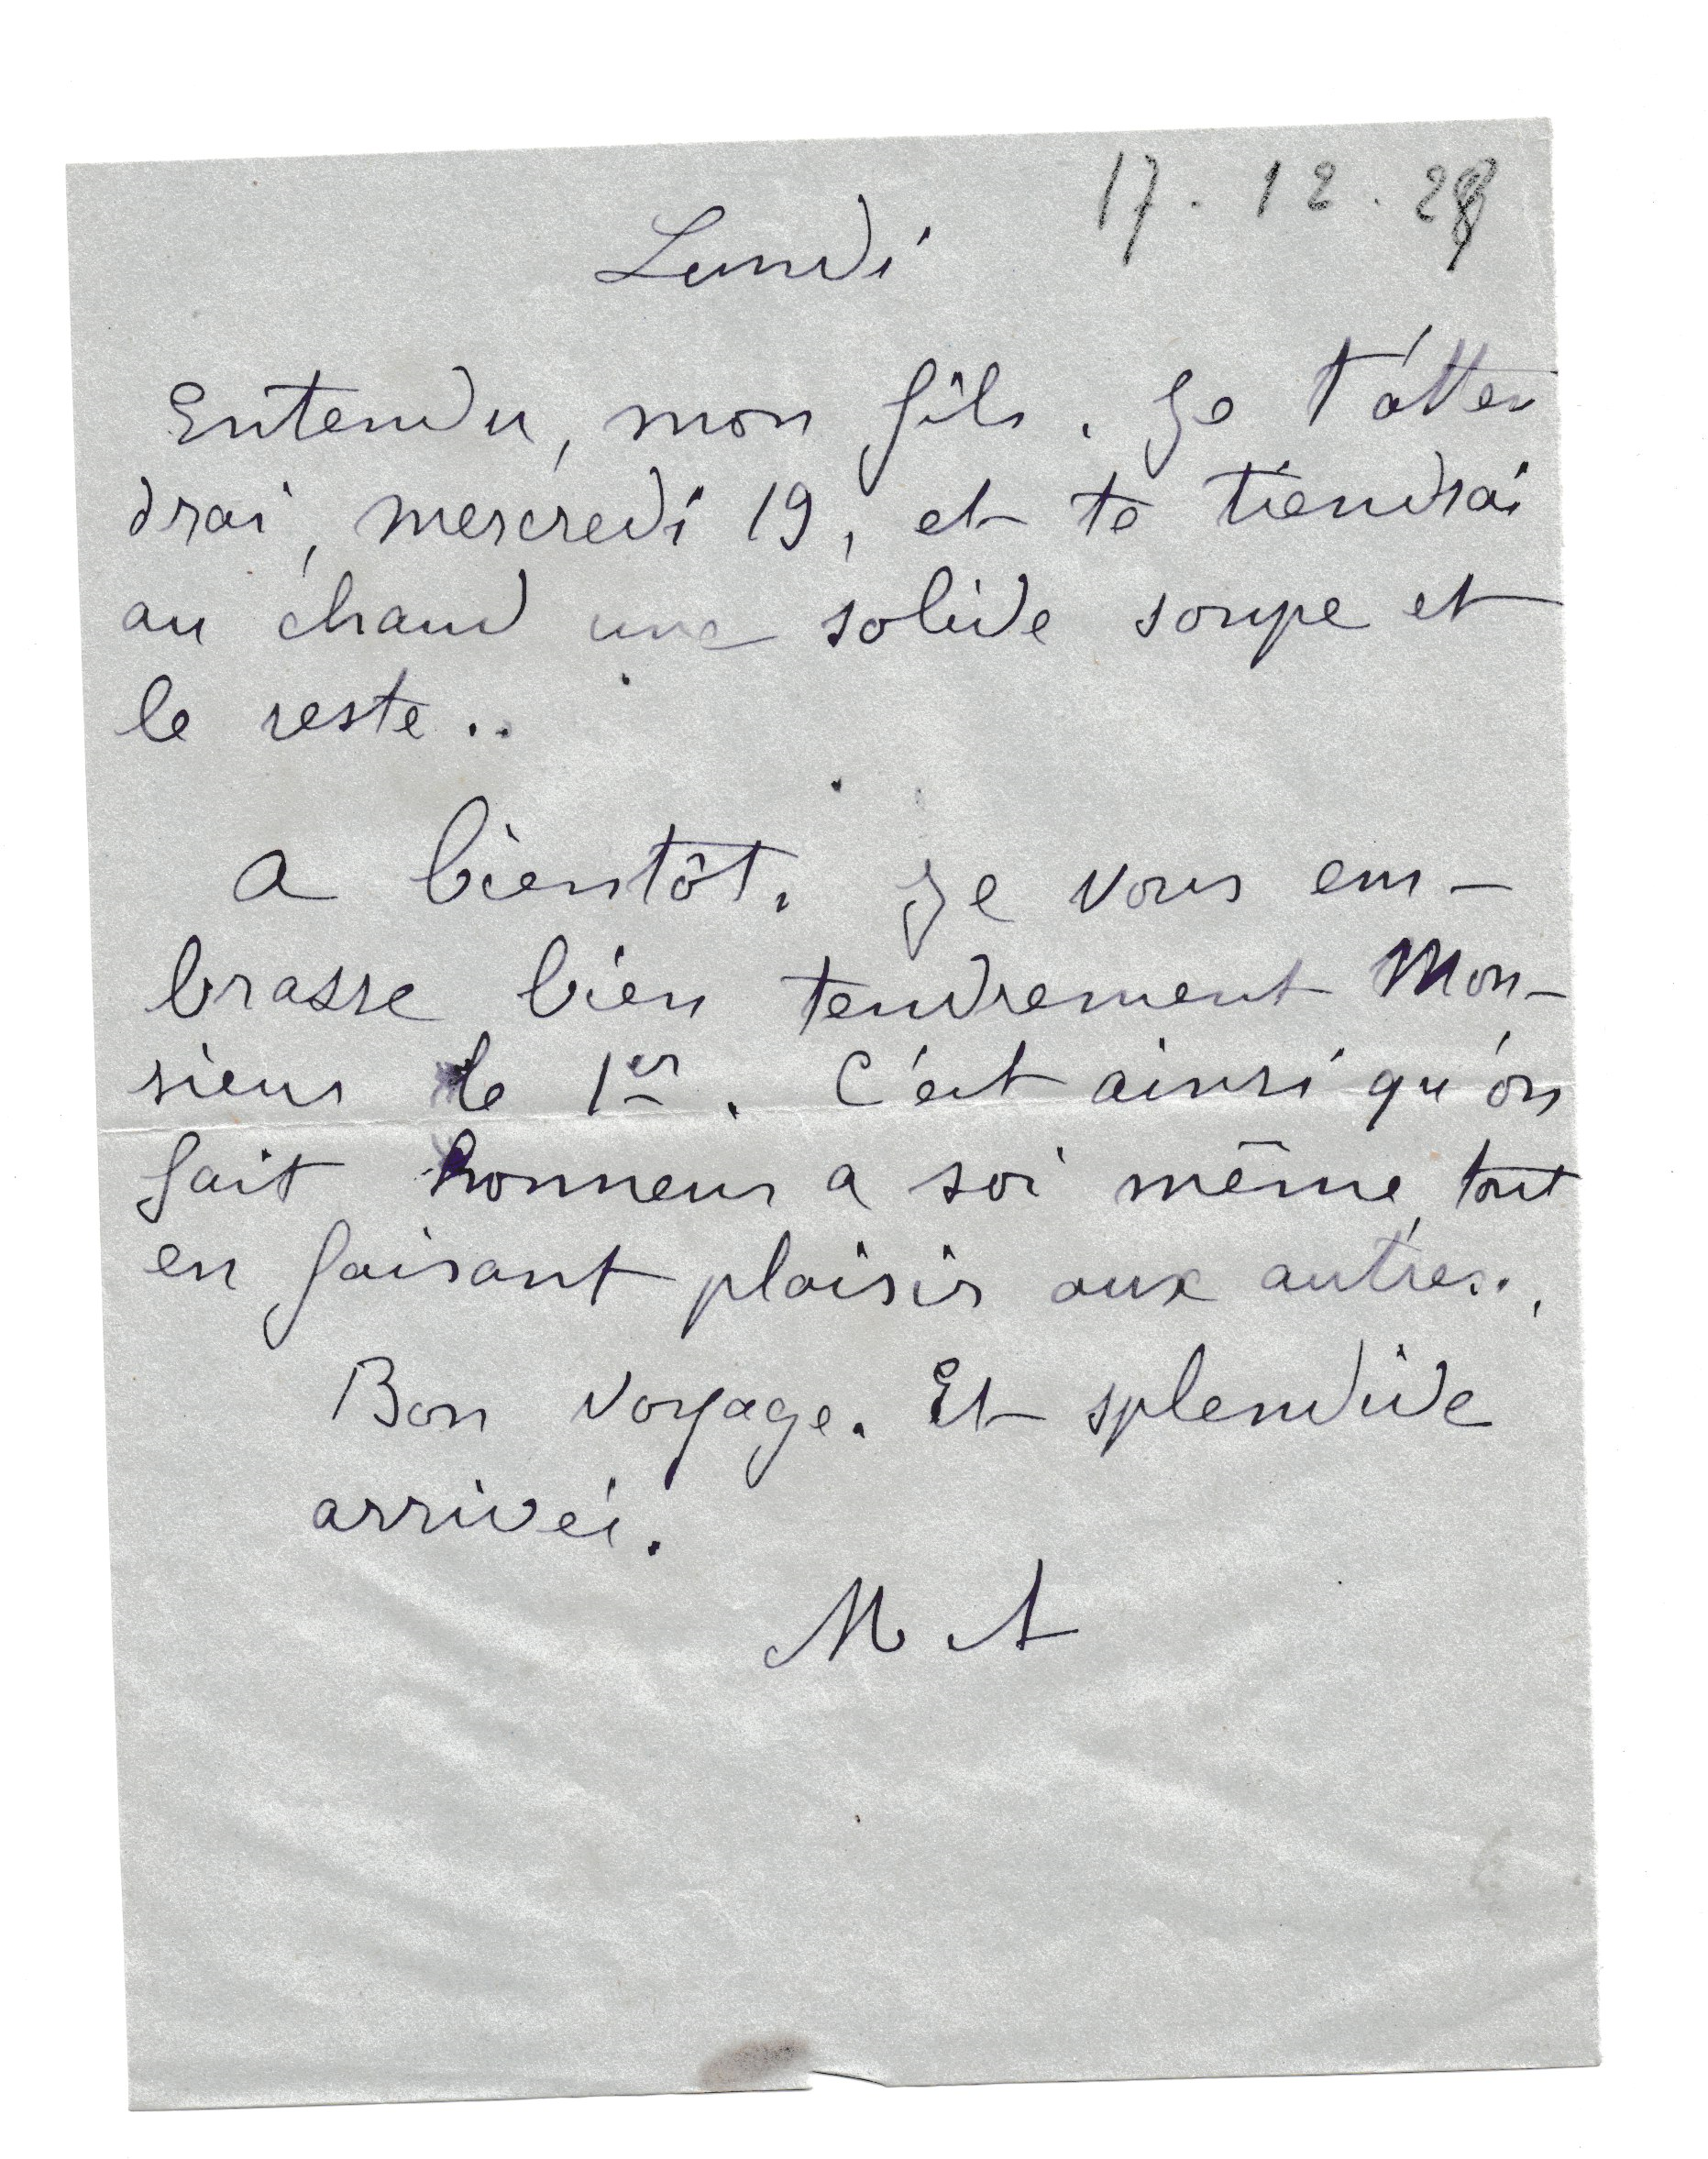 17. 12. 28
Lundi
Entendu, mon fils. Je t'atten
drai, mercredi 19, et te tiendrai
au chaud une solide soupe et
le reste..
A bientôt. Je vous em-
brasse bien tendrement Mon-
sieur le 1er. C'est ainsi qu'on
fait honneur a soi même, tout
en faisant plaisir aux autres.
Bon voyage. Et splendide
arrivée.
M A